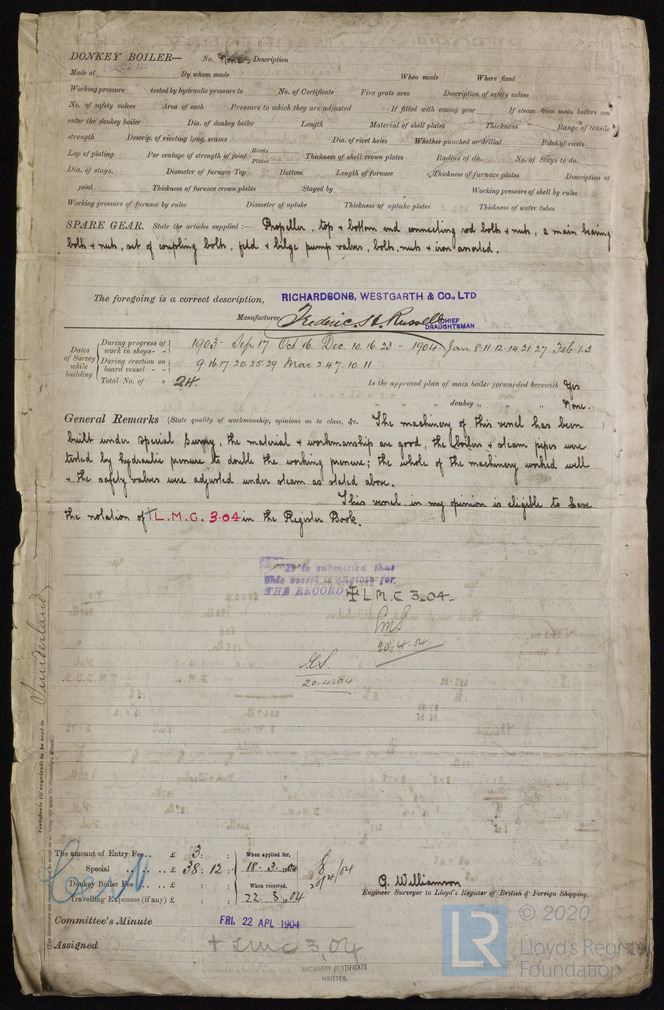 DONKEY BOILER— No. None. Description
Made at By whom made When made Where fixed
Working pressure tested by hydraulic pressure to No. of Certificate Fire grate area Description of safety valves
No. of safety valves Area of each Pressure to which they are adjusted If fitted with easing gear If steam from main boilers can
enter the donkey boiler Dia. of donkey boiler Length Material of shell plates Thickness Range of tensile
strength Descrip. of riveting long. seams Dia. of rivet holes Whether punched or drilled Pitch of rivets
Lap of plating Per centage of strength of joint Rivets Plates Thickness of shell crown plates Radius of do. No. of Stays to do.
Dia. of stays. Diameter of furnace Top Bottom Length of furnace Thickness of furnace plates Description of
joint Thickness of furnace crown plates Stayed by Working pressure of shell by rules
Working pressure of furnace by rules Diameter of uptake Thickness of uptake plates Thickness of water tubes
SPARE GEAR. State the articles supplied:— Propeller, top & bottom end connecting rod bolts & nuts, 2 main bearing
bolts & nuts, set of coupling bolts, feed & bilge pump valves, bolts, nuts & iron assorted.
The foregoing is a correct description,
RICHARDSONS, WESTGARTH & CO., LTD
Manufacturer. Frederic H. Russell CHIEF DRAUGHTSMAN
Dates of Survey while building
During progress of work in shops- - 1903- Sep 17 Oct 16 Dec. 10. 16. 23 - 1904 Jan 8. 11. 12. 14. 21. 27 Feb 1. 3
During erection on board vessel - - 9. 16. 17. 20. 25. 29 Mar 2. 4. 7. 10. 11
Total No. of 24.
Is the approved plan of main boiler forwarded herewith Yes
" " " donkey " " " None.
General Remarks (State quality of workmanship, opinions as to class, &c. The machinery of this vessel has been
built under special survey, the material & workmanship are good, the boilers & steam pipes were
tested by hydraulic pressure to double the working pressure; the whole of the machinery worked well
& the safety valves were adjusted under steam as stated above.
This vessel in my opinion is eligible to have
the notation of + L.M.C. 3.04 in the Register Book.
It is submitted that
this vessel is eligible for
THE RECORD + L.M.C 3.04-
20.4.04
20.4.04
Sunderland
Certificate (if required) to be sent to
The amount of Entry Fee.. £ 3 : :
Special £ 38 : 12 :
Donkey Boiler Fee £ : :
Travelling Expenses (if any) £ : :
When applied for, 18.3.04
When received, 22.3.04
20/4/04
G. Williamson
Engineer Surveyor to Lloyd's Register of British & Foreign Shipping.
Committee's Minute FRI. 22 APL 1904
Assigned + LMC 3,04
MACHINERY CERTIFICATE
WRITTEN.
LR © 2020
Lloyd's Register
Foundation